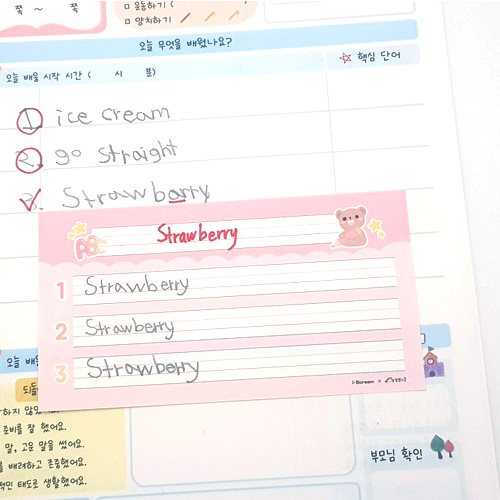 쭉 ~ 쭉
□ 운동하기 (
□ 양치하기
오늘 무엇을 배웠나요?
오늘 배움 시작 시간 ( 시 분)
☆ 핵심 단어
1. ice cream
2. go straight
3. Strawbarry
ABC
Strawberry
1 Strawberry
2 Strawberry
3 Strawberry
i-Scream ×
오늘 배움
되돌
하지 않았
준비를 잘 했어요.
말, 고운 말을 썼어요.
를 배려하고 존중했어요.
적인 태도로 생활했어요.
부모님 확인